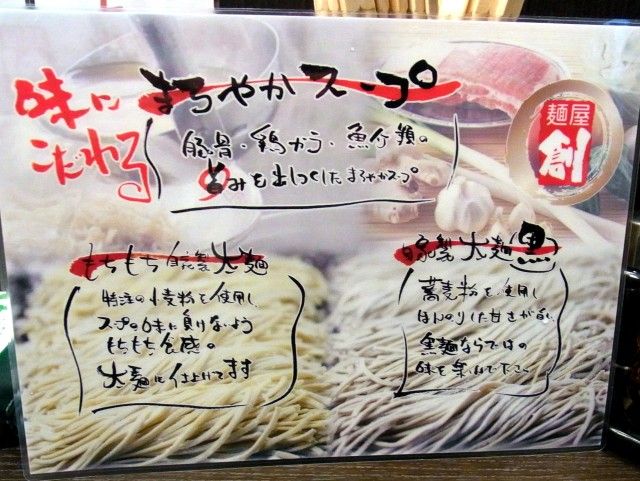 味に
こだわる
まろやかスープ
豚骨・鶏ガラ・魚介類の
旨みを出しつくしたまろやかスープ
麺屋
創
もちもち自家製太麺
特注の小麦粉を使用し、
スープの味に負けないよう
もちもち食感の
太麺に仕上げてます
自家製太麺(黒)
蕎麦粉を使用し
ほんのりした甘さが
黒麺ならではの
味を楽しんで下さい